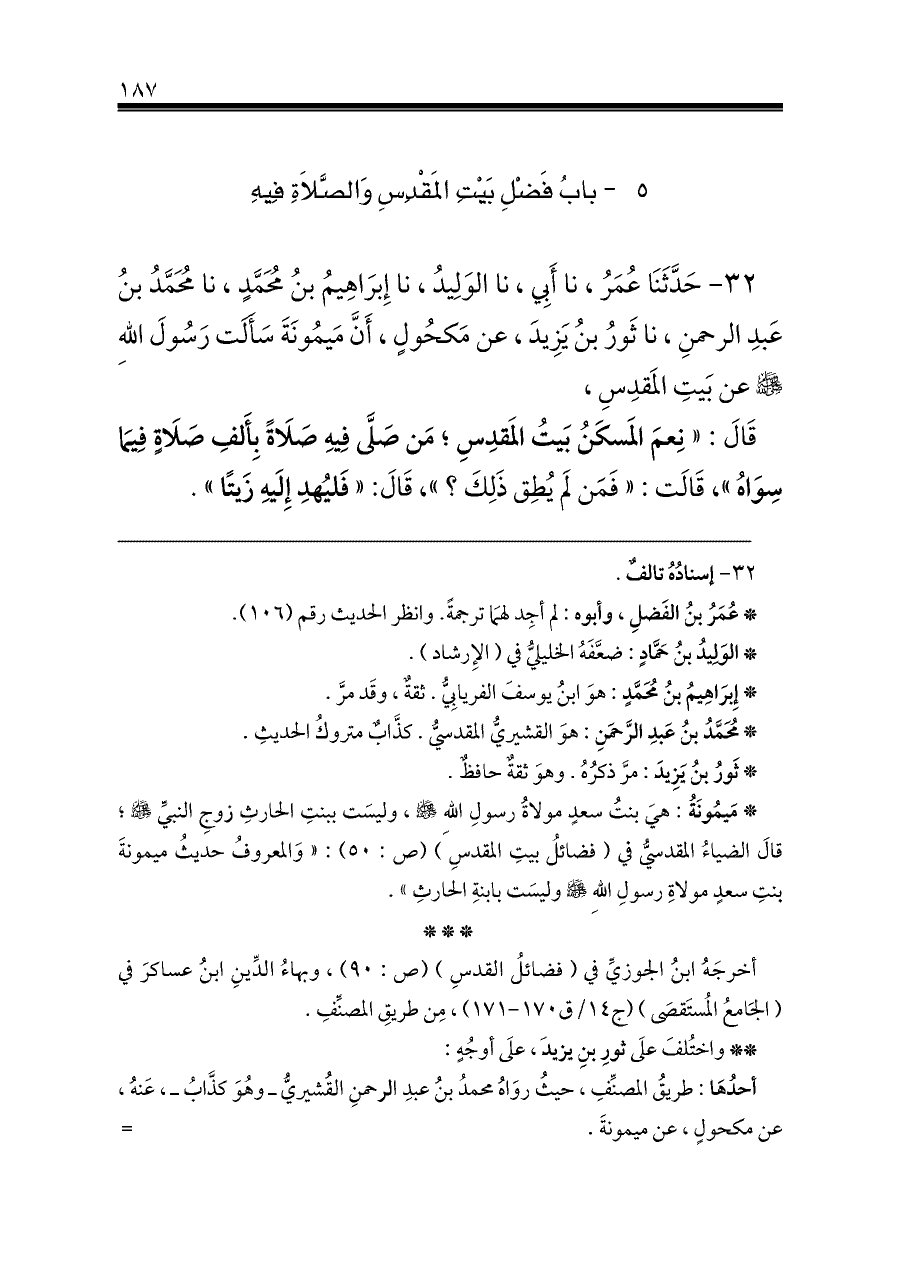 ١٨٧
٥ - بابُ فَضْلِ بَيْتِ المَقْدِسِ وَالصَّلاَةِ فِيهِ
٣٢- حَدَّثَنَا عُمَرُ ، نا أَبِي ، نا الوَلِيدُ ، نا إِبرَاهِيمُ بنُ مُحَمَّدٍ ، نا مُحَمَّدُ بنُ
عَبدِ الرحمنِ ، نا ثَورُ بنُ يَزِيدَ ، عن مَكحُولٍ ، أَنَّ مَيمُونَةَ سَأَلَت رَسُولَ اللهِ
ﷺ عن بَيتِ المَقدِسِ ،
قَالَ : « نِعمَ المَسكَنُ بَيتُ المَقدِسِ ؛ مَن صَلَّى فِيهِ صَلَاةً بِأَلفِ صَلَاةٍ فِيمَا
سِوَاهُ »، قَالَت : « فَمَن لَم يُطِق ذَلِكَ ؟ »، قَالَ: « فَليُهدِ إِلَيهِ زَيتًا » .
٣٢- إسنادُهُ تالفٌ .
* عُمَرُ بنُ الفَضلِ ، وأبوه : لم أجِد لهمَا ترجمةً. وانظر الحديث رقم (١٠٦).
* الوَلِيدُ بنُ حَمَّادٍ : ضعَّفَهُ الخليليُّ في ( الإرشاد ) .
* إِبرَاهِيمُ بنُ مُحَمَّدٍ : هوَ ابنُ يوسفَ الفريابِيُّ . ثقةٌ ، وقَد مرَّ .
* مُحَمَّدُ بنُ عَبدِ الرَّحمَنِ : هوَ القشيريُّ المقدسيُّ . كذَّابٌ متروكُ الحديثِ .
* ثَورُ بنُ يَزِيدَ : مرَّ ذكرُهُ . وهوَ ثقةٌ حافظٌ .
* مَيمُونَةُ : هيَ بنتُ سعدٍ مولاةُ رسولِ اللهِ ﷺ ، وليسَت ببنتِ الحارثِ زوجِ النبيِّ ﷺ ؛
قالَ الضياءُ المقدسيُّ في ( فضائلُ بيتِ المقدسِ ) (ص : ٥٠) : « وَالمعروفُ حديثُ ميمونةَ
بنتِ سعدٍ مولاةِ رسولِ اللهِ ﷺ وليسَت بابنةِ الحارثِ » .
* * *
أخرجَهُ ابنُ الجوزيِّ في ( فضائلُ القدسِ ) (ص : ٩٠) ، وبهاءُ الدِّينِ ابنُ عساكرَ في
( الجَامعُ المُستَقصَى ) (ج١٤/ ق١٧٠-١٧١) ، مِن طريقِ المصنِّفِ .
** واختُلفَ علَى ثورِ بنِ يزيدَ ، علَى أوجُهٍ :
أحدُهَا : طريقُ المصنِّفِ ، حيثُ روَاهُ محمدُ بنُ عبدِ الرحمنِ القُشيريُّ ـ وهُوَ كذَّابُ ـ ، عَنهُ ،
عن مكحولٍ ، عن ميمونةَ . =